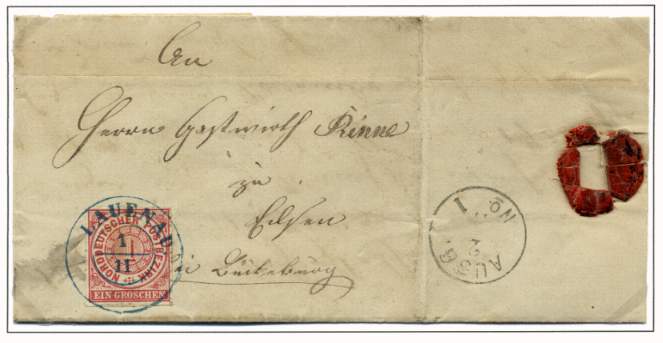 An
Herrn Gastwirth Rinne
zu
Eilsen
bei Bückeburg
LAUENAU
1
11
NORDDEUTSCHER POSTBEZIRK
1
EIN GROSCHEN
AUSG.
2
No I